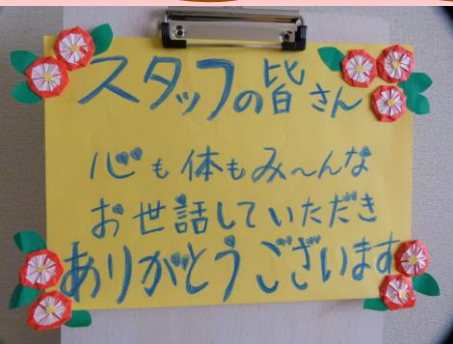 スタッフの皆さん
心も体もみ〜んな
お世話していただき
ありがとうございます